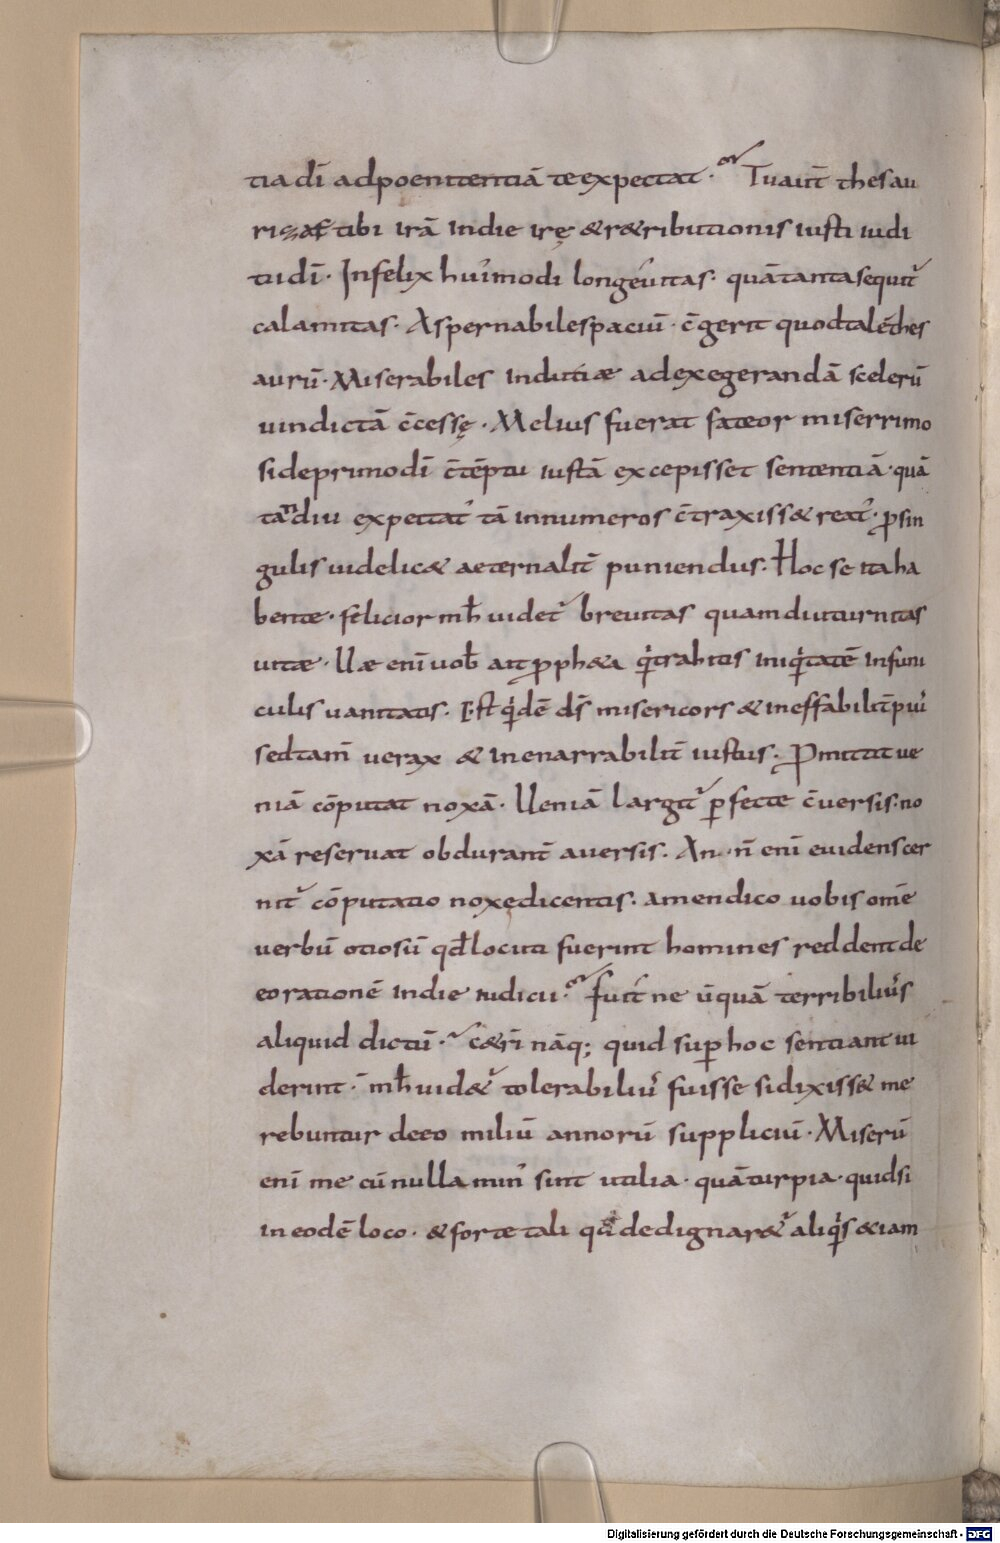 tia dī ad poenitentiā te expectat. Tu aut̄ thesau
rizas tibi irā in die irę & r&ributionis iusti iudi
tii dī. Infelix hui'modi longeuitas. quā tanta sequit̄
calamitas. Aspernabile spaciū. c̄gerit quod talē thes
aurū. Miserabiles inductiae ad exegerandā scelerū
uindictā c̄cessę. Melius fuerat fateor miserrimo
si de primo dī c̄tēptu iustā excepisset sententiā. quā
tandiu expectat' tā innumeros c̄traxiss& reat'. ꝓ sin
gulis uidelic& aeternalit̄ puniendus. Hoc se ita ha
bente. felicior mħ uidet̄ breuitas quam diuturnitas
uitae. Uae enī uob̄ ait ꝓph&a q̇ trahitis iniq̇tatē in funi
culis uanitatis. Est q̇dē ds̄ misericors & ineffabilit̄ piu'
sed tam̄ uerax & inenarrabilit̄ iustus. Pmittit ue
niā cōputat noxā. Ueniā largit̄ ꝑfecte c̄uersis. no
xā reseruat obdurant̄ auersis. An n̄ enī euidens cer
nit̄ cōputatio noxę dicentis. amen dico uobis om̄e
uerbū otiosū qd̄ locuti fuerint homines reddent de
eo rationē in die iudicii. fuit ne ūquā terribiliu's
aliquid dictū. c&er̄i nāq; quid suꝑ hoc sentiant ui
derint. mħ uid&̄ tolerabiliu' fuisse si dixiss& me
rebuntur de eo miliū annorū suppliciū. Miserū
enī me cū nulla min' sint utilia. quā turpia. quid si
in eodē loco. & forte tali quē dedignar&̄ aliq̇s &iam
Digitalisierung gefördert durch die Deutsche Forschungsgemeinschaft - DFG